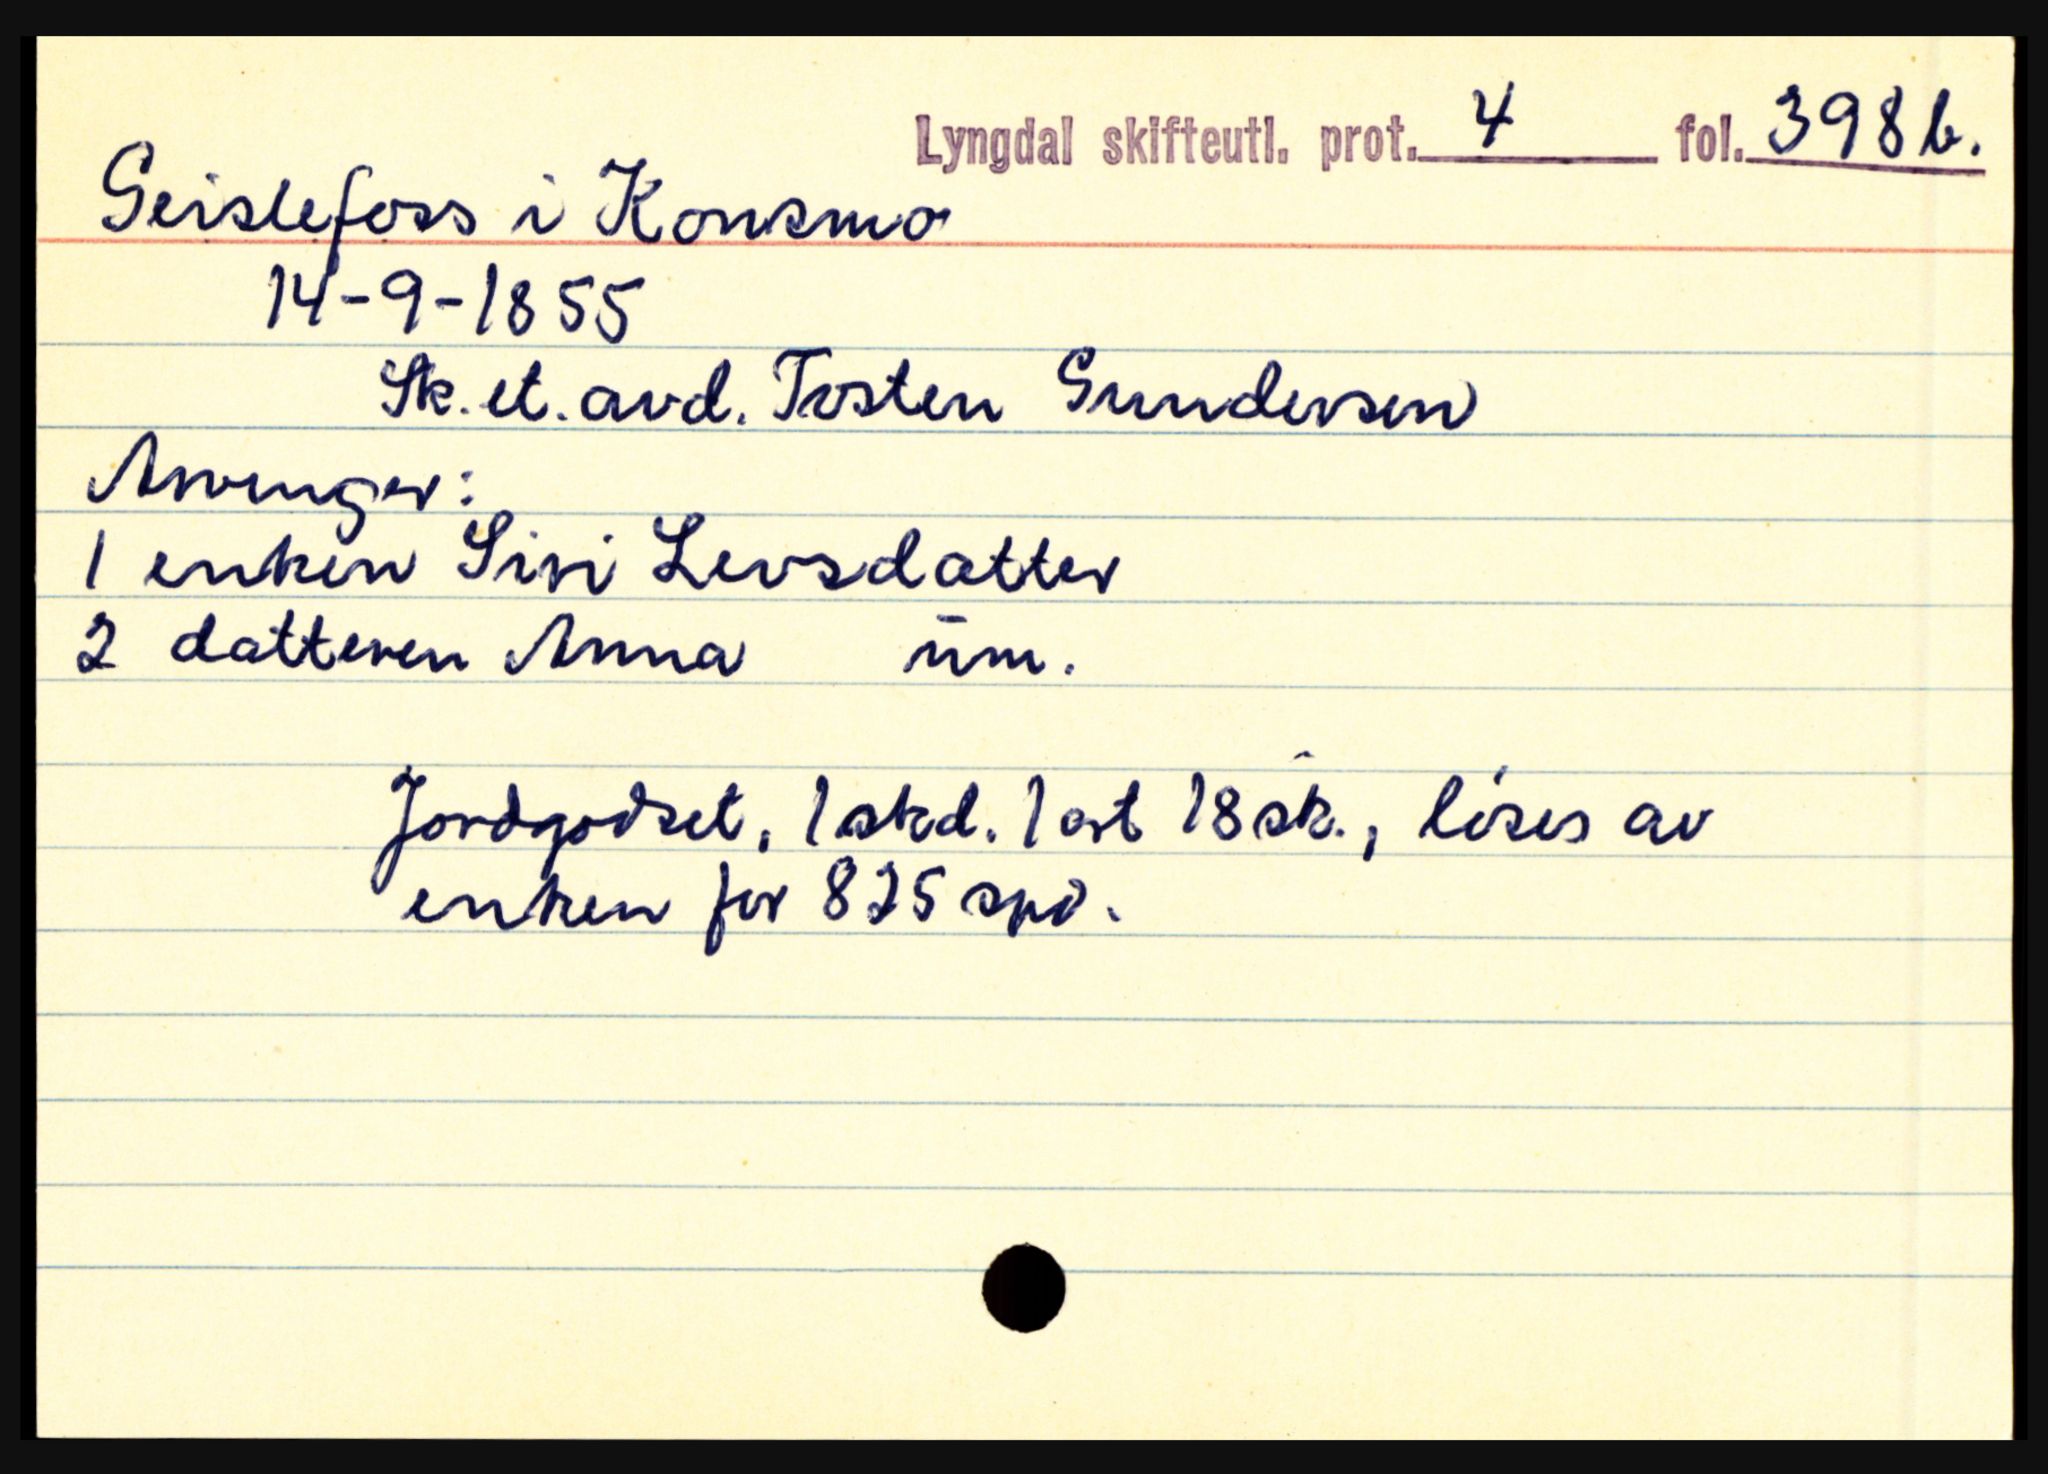 Lyngdal skifteutl. prot. 4 fol. 398 b.
Geislefoss i Konsmo
14-9-1855
Sk. et. avd. Tosten Gundersen
Arvinger:
1 enken Siri Levsdatter
2 datteren Anna um.
Jordgodset, 1 skd. 1 ort 18 sk., løses av
enken for 825 spd.